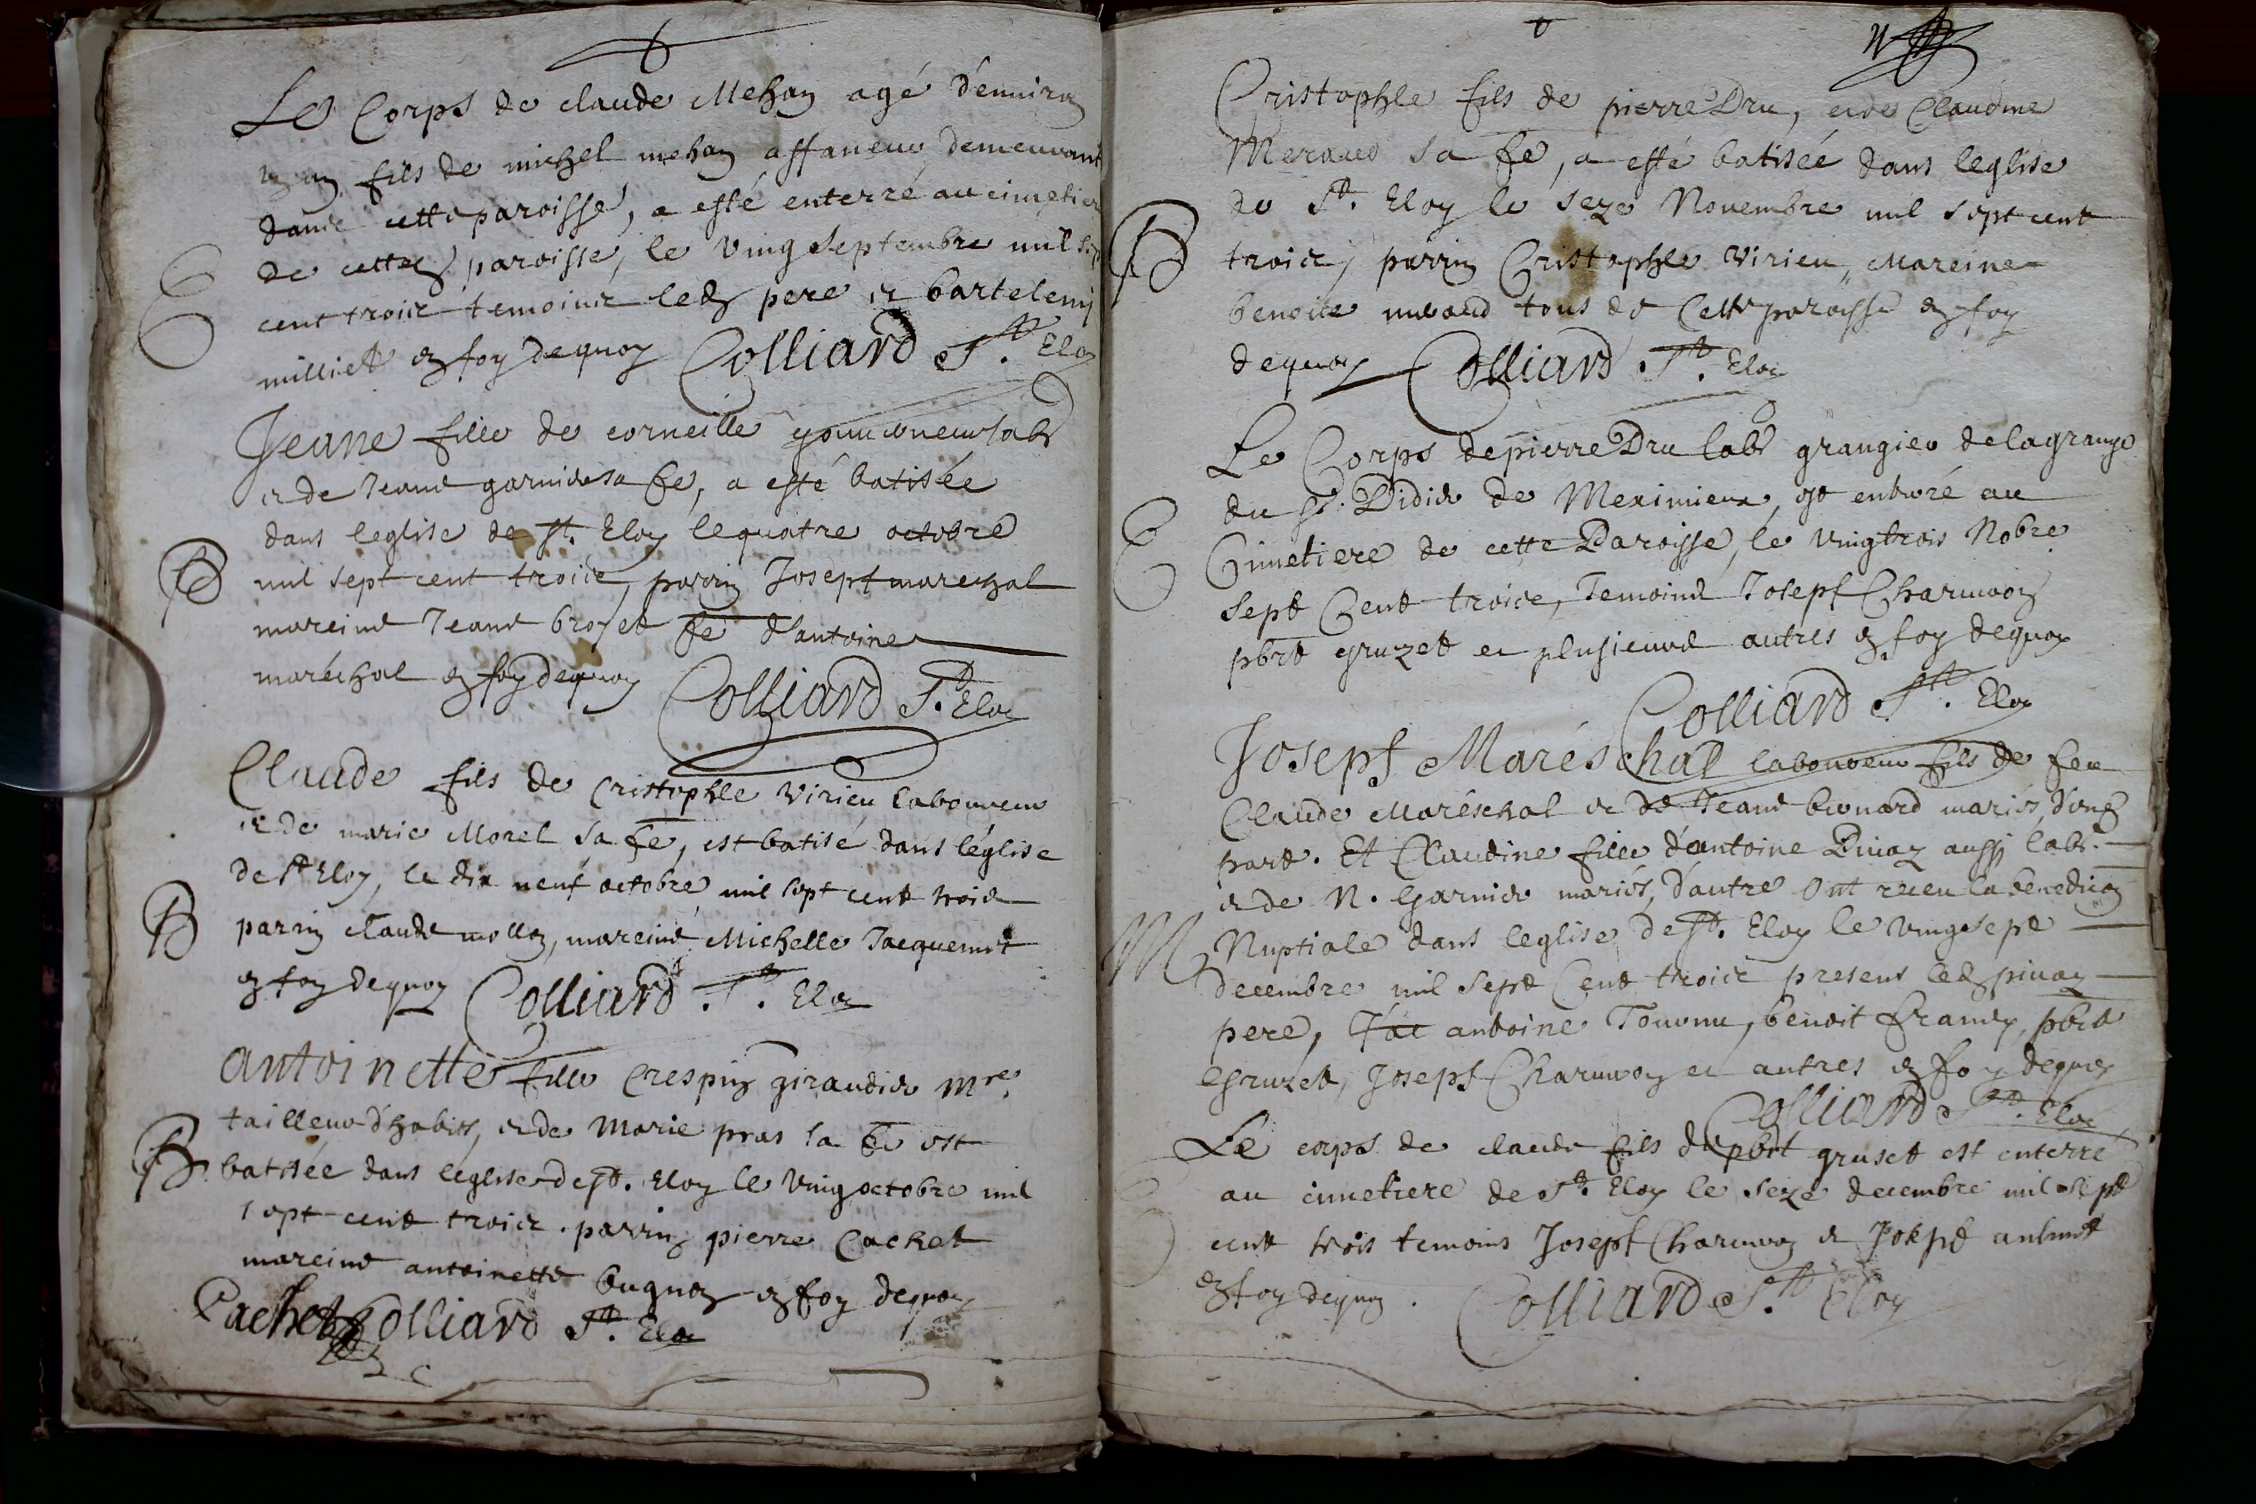 Le Corps de claude Mehan agé d'enuiron
un an fils de michel mehan affaneur demeurant
dans cette paroisse, a esté enterré au cimetiere
E de cetted paroisse, le ving septembre mil sept
cent trois temoins led pere et bartelemy
milliet en foy dequoy Colliard St. Eloy
Jeane fille de corneille labr
et de Jeane garnier sa fe, a esté batisée
dans leglise de St. Eloy le quatre octobre
B mil sept cent trois, parrin Josept marechal
mareine Jeane broyet fe d'antoine
maréchal en foy dequoy Colliard St. Eloy
Claude fils de Cristophle Virieu laboureur
et de marie Morel sa fe, est batisé dans léglise
de St Eloy, le dix neuf octobre mil sept cent trois
B parrin claude mollon, mareine Michelle Jacquemet
en foy dequoy Colliard St. Eloy
antoinette fille Crespin giraudier Mre.
tailleur d'habits, et de Marie pras sa fe est
B batisée dans léglise de St. Eloy le ving octobre mil
sept cent trois. parrin pierre Cachet
mareine antoinette bugnon en foy dequoy
Cachet Colliard St. Eloy
Cristophle fils de pierre Dru, et de Claudine
Meraud sa fe, a esté batisée dans leglise
de St. Eloy le seze Novembre mil sept cent
B trois, parrin Cristophle Virieu, Mareine
benoite meraud tous de Cette paroisse en foy
dequoy Colliard St. Eloy
Le Corps de pierre Dru labr grangier de la grange
du Sr. Didier de Meximieux, est enterré au
E Cimetiere de cette Paroisse, le vingtrois Nobre
sept Cent trois, Temoins Josept Charuron
pbrt gruzet et plusieurs autres en foy dequoy
Colliard St. Eloy
Josept Maréschal laboureur fils de feu
Claude Maréschal et de Jeane bernard mariés, d'one
part. Et Claudine fille d'antoine Pivaz aussi labr.
et de N. Garnier mariés, d'autre ont receu la benedicon
M Nuptiale dans leglise de St. Eloy le vingsept
decembre mil sept Cent trois presens led pivaz
pere, antoine Tournu, benoit pbrt
Gruzet, Josept Charuron et autres en foy dequoy
Colliard St. Eloy
Le corps de claude fils de pbrt gruset est enterré
au cimetiere de St. Eloy le seze decembre mil sept
E cent trois temoins Josept Charuron et Josept
en foy dequoy. Colliard St. Eloy